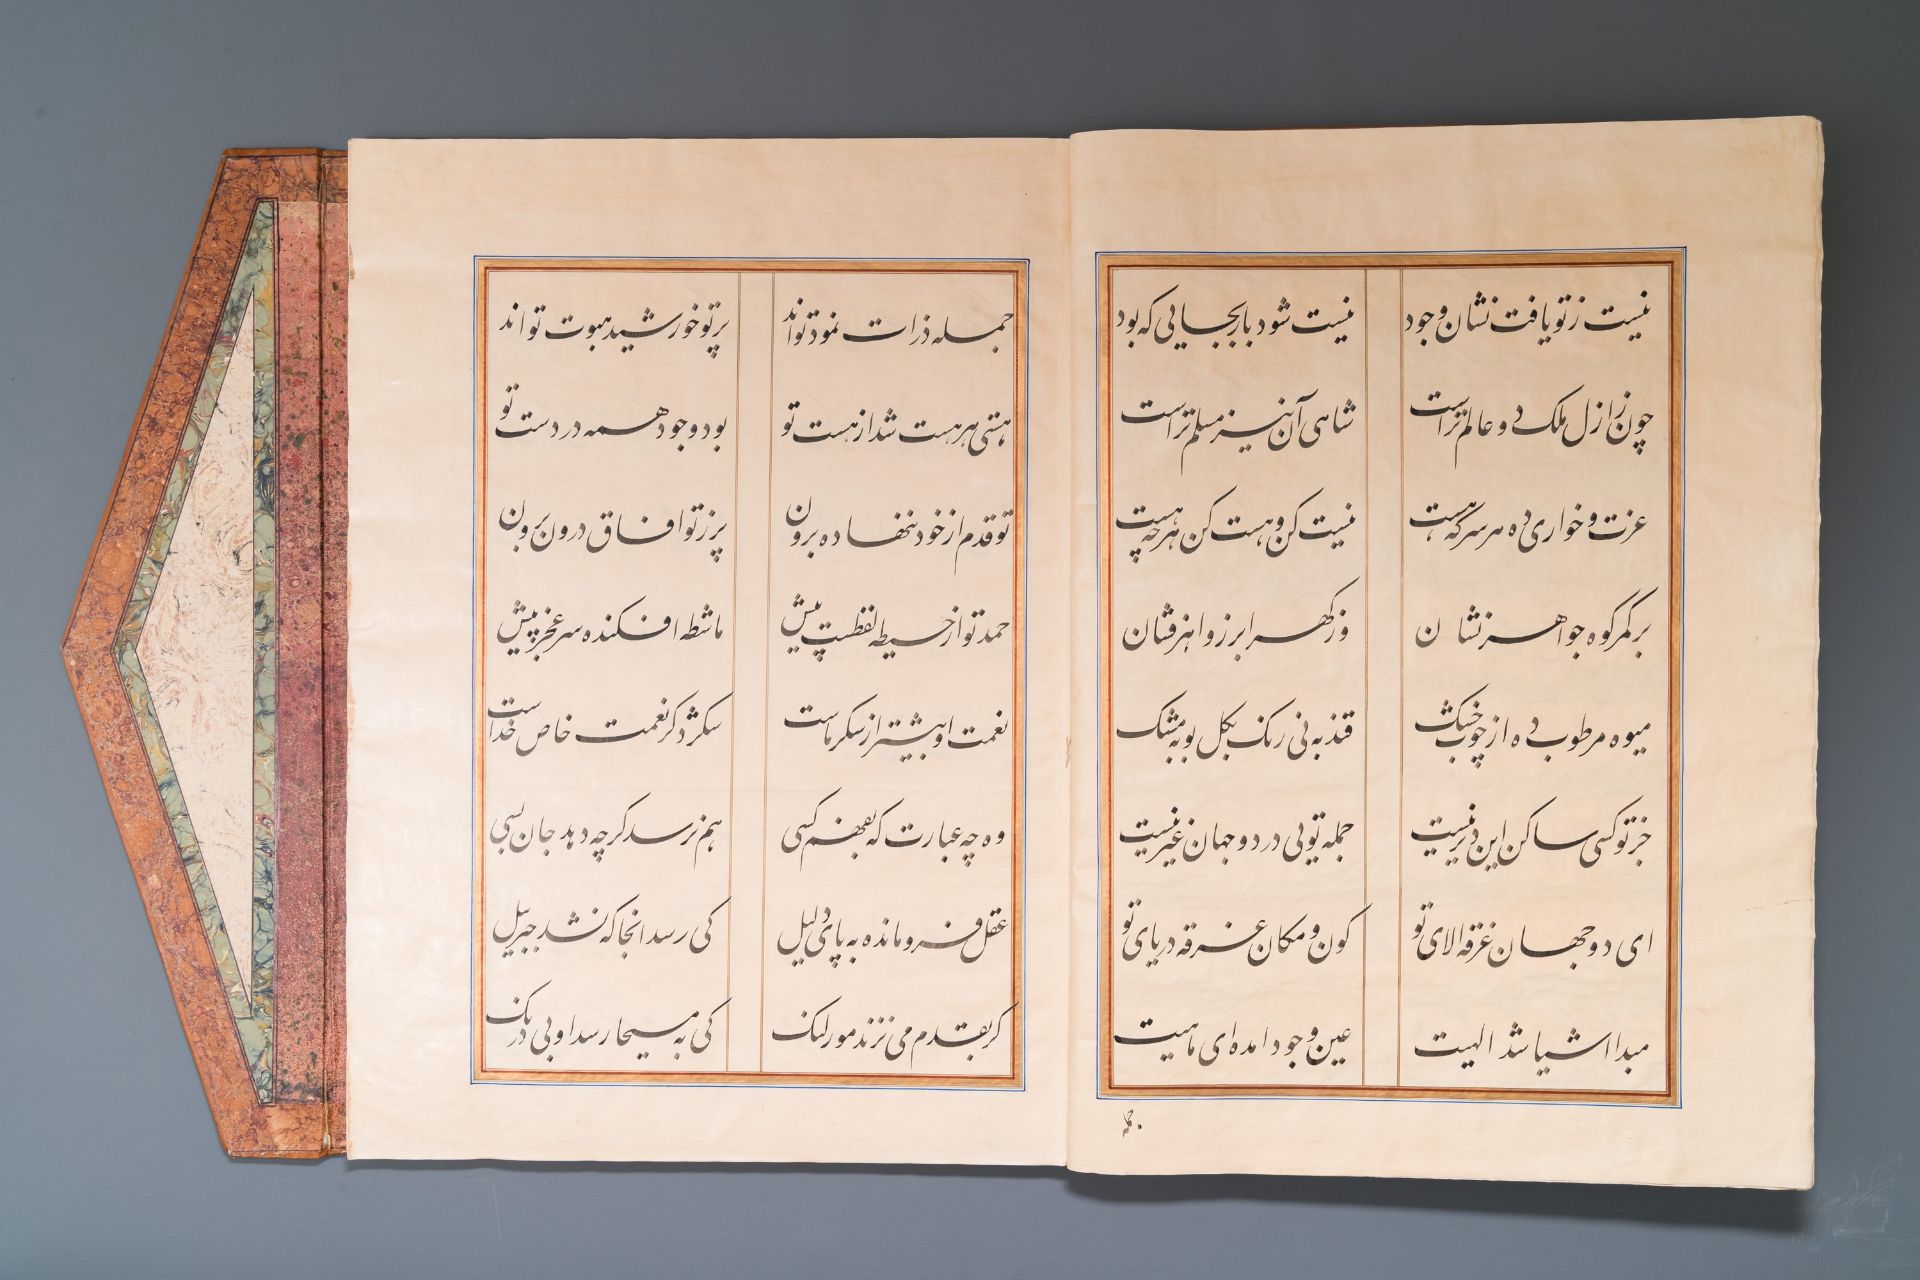 نیست ز تو یافت نشان وجود نیست شود باز بجایی که بود
چون ز ازل ملک دو عالم تراست شاهی آن نیز مسلم تراست
عزت و خواری ده هر سرکه هست نیست کن و هست کن هرچه هست
بر کمر کوه جواهر نشان وز گهر ابر زواهر فشان
میوه مرطوب ده از چوب خشک قند به نی رنک بکل بو به مشک
جز تو کسی ساکن این دیر نیست جمله تویی در دو جهان غیر نیست
ای دو جهان غرقه الای تو کون و مکان غرقه دریای تو
مبدا اشیا شد الهیت عین وجود امده ای ماهیت
جمله
جمله ذرات نمود تواند پرتو خورشید هبوت تواند
هستی هر هست شد از هست تو بود و وجود همه در دست تو
تو قدم از خود ننهاده برون پر ز تو افاق درون و برون
حمد تو از حیطه لفظست پیش ماشطه افکنده سر عجز پیش
نعمت او بیشتر از شکر ماست شکر دکر نعمت خاص خداست
وه چه عبارت که بفهم کسی هم نرسد کرچه دهد جان بسی
عقل فرو مانده به پای دلیل کی رسد انجا که نشد جبرییل
کر بقدم می نزند مور لنک کی به مسیحا رسد او بی درنک